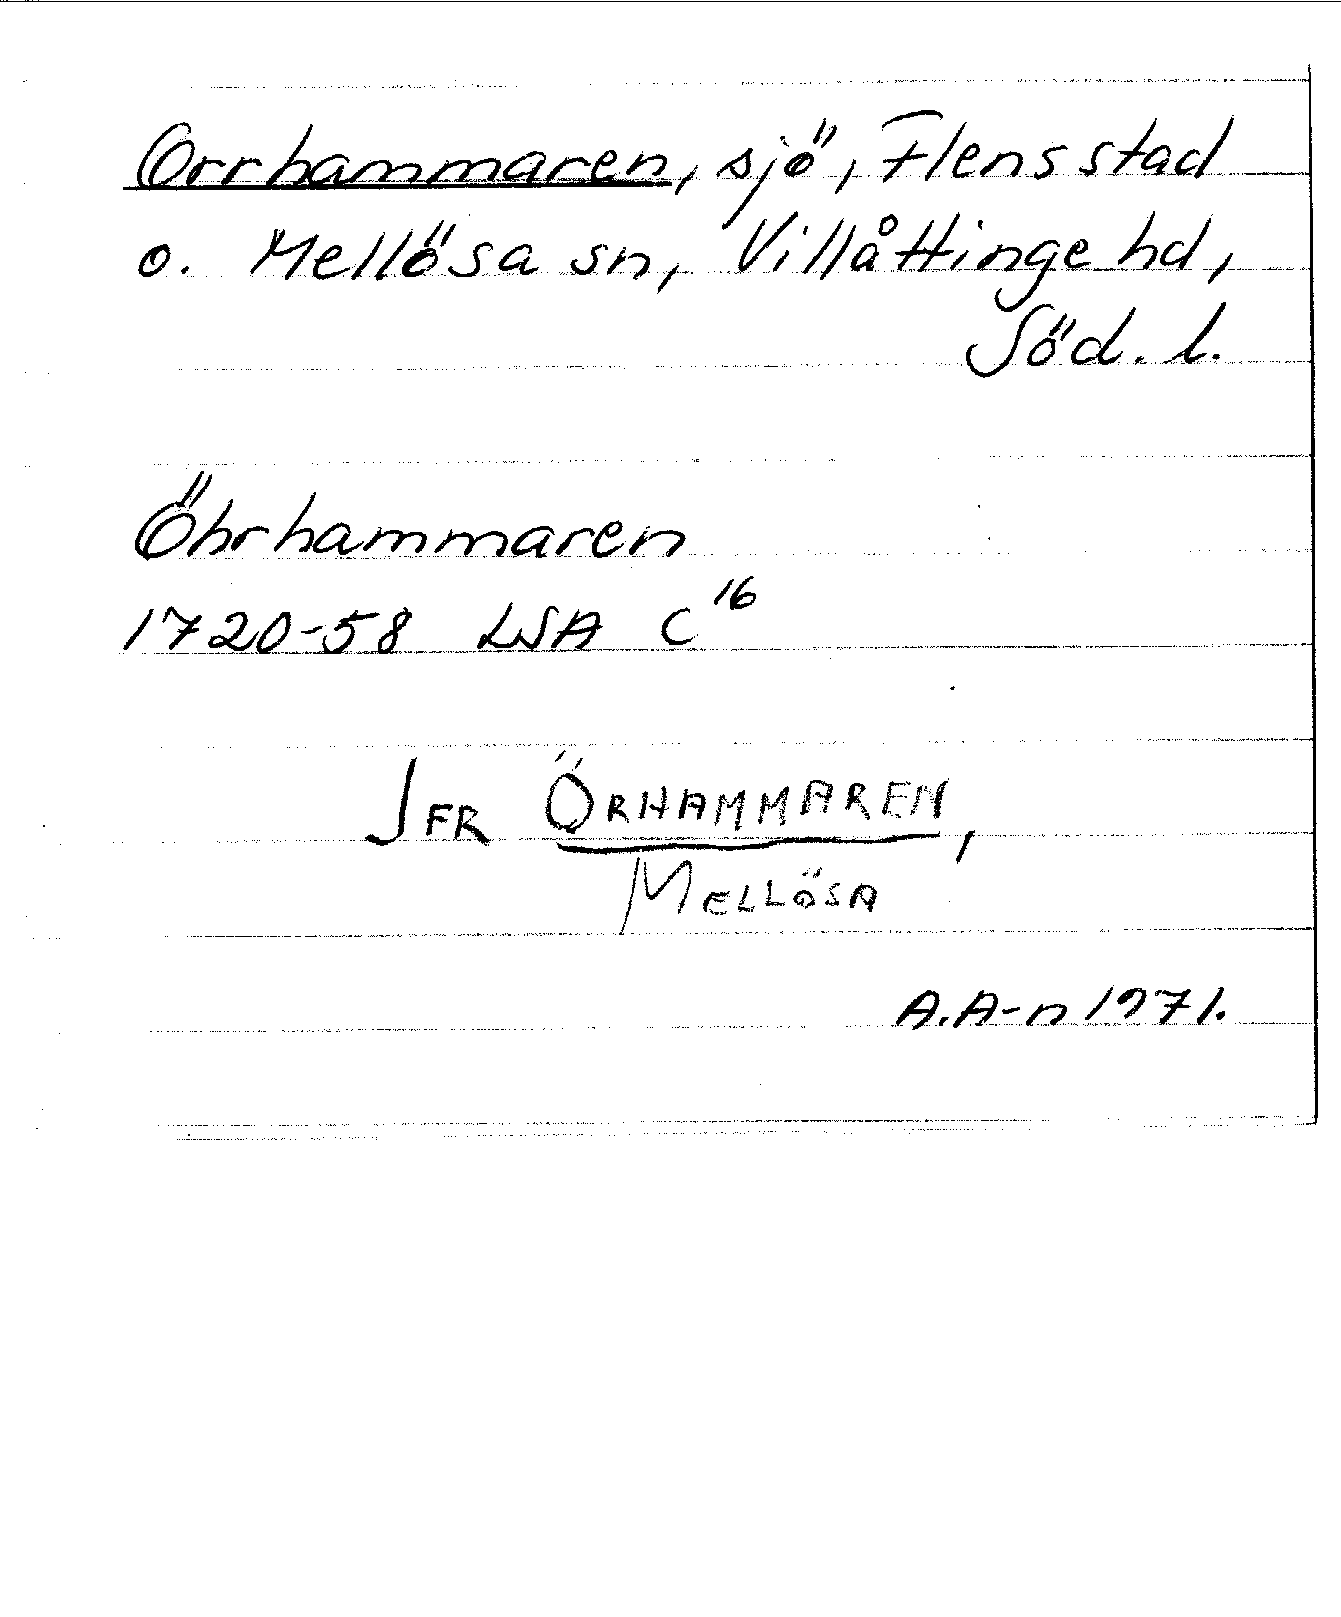 Orrhammaren, sjö, Flens stad
o. Mellösa sn, Villåttinge hd,
Söd. l.
Öhrhammaren
1720-58 LSA C¹⁶
JFR ÖRHAMMAREN,
MELLÖSA
A.A-n 1971.